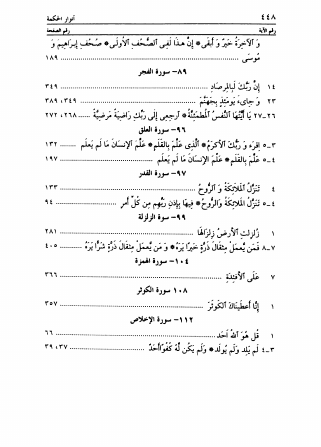 ٤٤٨ أسرار الحكمة
رقم الآية رقم الصفحة
وَ الآخِرَةُ خَيْرٌ وَ أَبْقَى * إِنَّ هٰذَا لَفِي الصُّحُفِ الأُولَى * صُحُفِ إِبْرَاهِيمَ وَ
مُوسَى ١٨٩
٨٩ــ سورة الفجر
١٤ إِنَّ رَبَّكَ لَبِالْمِرْصَادِ ٣٤٩
٢٣ وَ جِايءَ يَوْمَئِذٍ بِجَهَنَّمَ ٣٤٩، ٣٨٩
٢٦ــ٢٧ يَا أَيَّتُهَا النَّفْسُ الْمُطْمَئِنَّةُ * ارْجِعِي إِلَى رَبِّكِ رَاضِيَةً مَرْضِيَّةً ٢٦٨، ٢٧٢
٩٦ــ سورة العلق
٣ــ٥ اقرَء وَ رَبُّكَ الأَكرَمُ * الَّذِي عَلَّمَ بِالقَلَمِ * عَلَّمَ الإنسَانَ مَا لَم يَعلَم ١٣٢
٤ــ٥ عَلَّمَ بِالقَلَمِ * عَلَّمَ الإنسَانَ مَا لَم يَعلَم ١٩٧
٩٧ــ سورة القدر
٤ تَنَزَّلُ المَلَائِكَةُ وَ الرُّوحُ ١٣٣
٤ــ٥ تَنَزَّلُ المَلَائِكَةُ وَالرُّوحُ * فِيهَا بِإِذنِ رَبِّهِم مِن كُلِّ أَمر ٩٤
٩٩ــ سورة الزلزلة
١ زُلزِلَتِ الأَرضُ زِلزَالَهَا ٢٨١
٧ــ٨ فَمَن يَعمَل مِثقَالَ ذَرَّةٍ خَيرًا يَرَهُ * وَ مَن يَعمَل مِثقَالَ ذَرَّةٍ شَرًّا يَرَهُ ٤٠٥
١٠٤ــ سورة الهمزة
٧ عَلَى الأَفئِدَةِ ٣٦٦
١٠٨ سورة الكوثر
١ إِنَّا أَعطَينَاكَ الكَوثَرَ ٣٥٧
١١٢ــ سورة الإخلاص
١ قُل هُوَ اللهُ أَحَد ٦٦
٣ــ٤ لَم يَلِد وَلَم يُولَد * وَلَم يَكُن لَهُ كُفُواً أَحَدٌ ٣٧، ٣٩